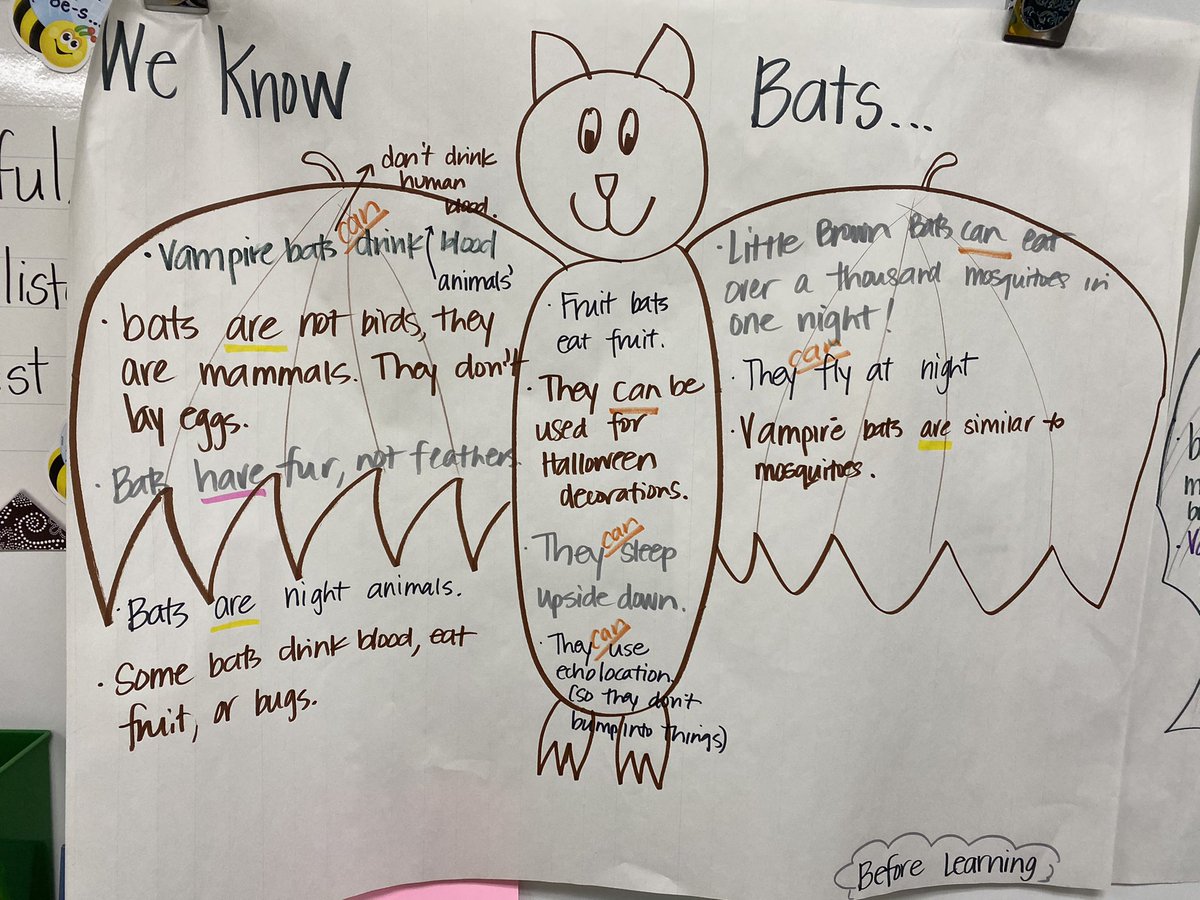 We Know Bats...
don't drink
human
blood.
• Vampire bats can drink blood
animals'
• bats are not birds, they
are mammals. They don't
lay eggs.
• Bats have fur, not feathers.
• Bats are night animals.
• Some bats drink blood, eat
fruit, or bugs.
• Fruit bats
eat fruit.
• They can be
used for
Halloween
decorations.
• They can sleep
upside down.
• They can use
echolocation
(so they don't
bump into things)
• Little Brown Bats can eat
over a thousand mosquitoes in
one night!
• They can fly at night
• Vampire bats are similar to
mosquitoes.
Before Learning
be-s...
ful
list
st